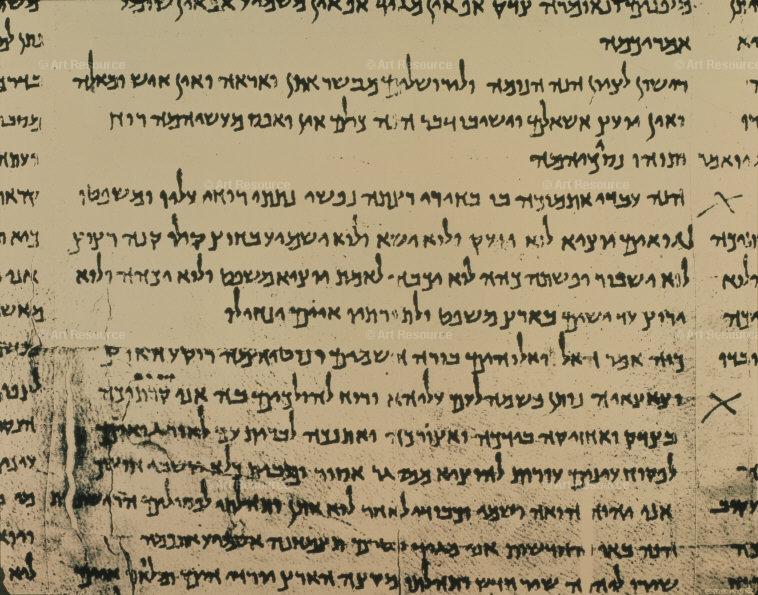 ונאומרה צדק אף אין מגיד אף אין משמיע אף אין שומע
אמריכמה
רישון לציון הנה הנומה ולירושלים מבשר אתן ואראה ואין איש ומאלה
ואין יועץ אשאלם וישיבו דבר הנה כולם אין ואפס מעשיהמה רוח
ותוהו נסכיהמה
הנה עבדי אתמוכה בו בחירי רצתה נפשי נתתי רוחי עליו ומשפטו
לגואים יוציא לוא יזעק ולוא ישא ולוא ישמיע בחוץ קולו קנה רצוץ
לוא ישבור ופשתה כהה לוא יכבה לאמת יוציא משפט ולוא יכהה ולוא
ירוץ עד ישים בארץ משפט ולתורתו איים ינחילו
כוה אמר האל ואלוהים בורה השמים ונוטיהמה רוקע הארץ
וצאצאיה נותן נשמה לעם עליהא ורוח להולכים בה אני קרתיכה
בצדק ואחזיקה בידכה ואצורכה ואתנכה לברית עם לאור גואים
לפקוח עינים עורות להוציא ממסגר אסיר ומבית כלא יושבי חושך
אני יהוה הואה ושמי וכבודי לאחר לוא אתן ותהלתי לפסילים
הנה באו והחדשות אני מגיד בטרם תצמחנה אשמיע אתכמה
שירו ליהוה שיר חדש ותהלתו מקצה הארץ יורדי הים ומלואו איים